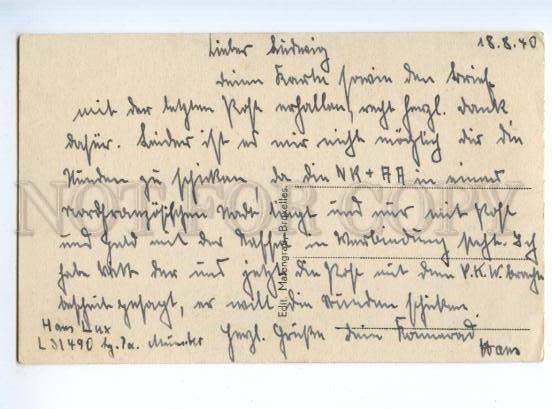 18.8.40
Lieber Ludwig
deine Karte sowie den Brief
mit der letzten Post erhalten, recht herzl. Dank
dafür. Leider ist es mir nicht möglich dir die
Stunden zu schicken, da die NK + AA in einer
nordfranzösischen Stadt liegt und nur mit Post
und Geld mit der in Verbindung steht. Ich
habe der und jetzt die Post mit dem P.K.W.
bescheid gesagt, er will die Stunden schicken.
Herzl. Grüße dein Kamerad
Hans
Hans Lux
L 31490 Lg. Pa. Münster
Edit. Malengraph-Bruxelles.
NOT FOR COPY